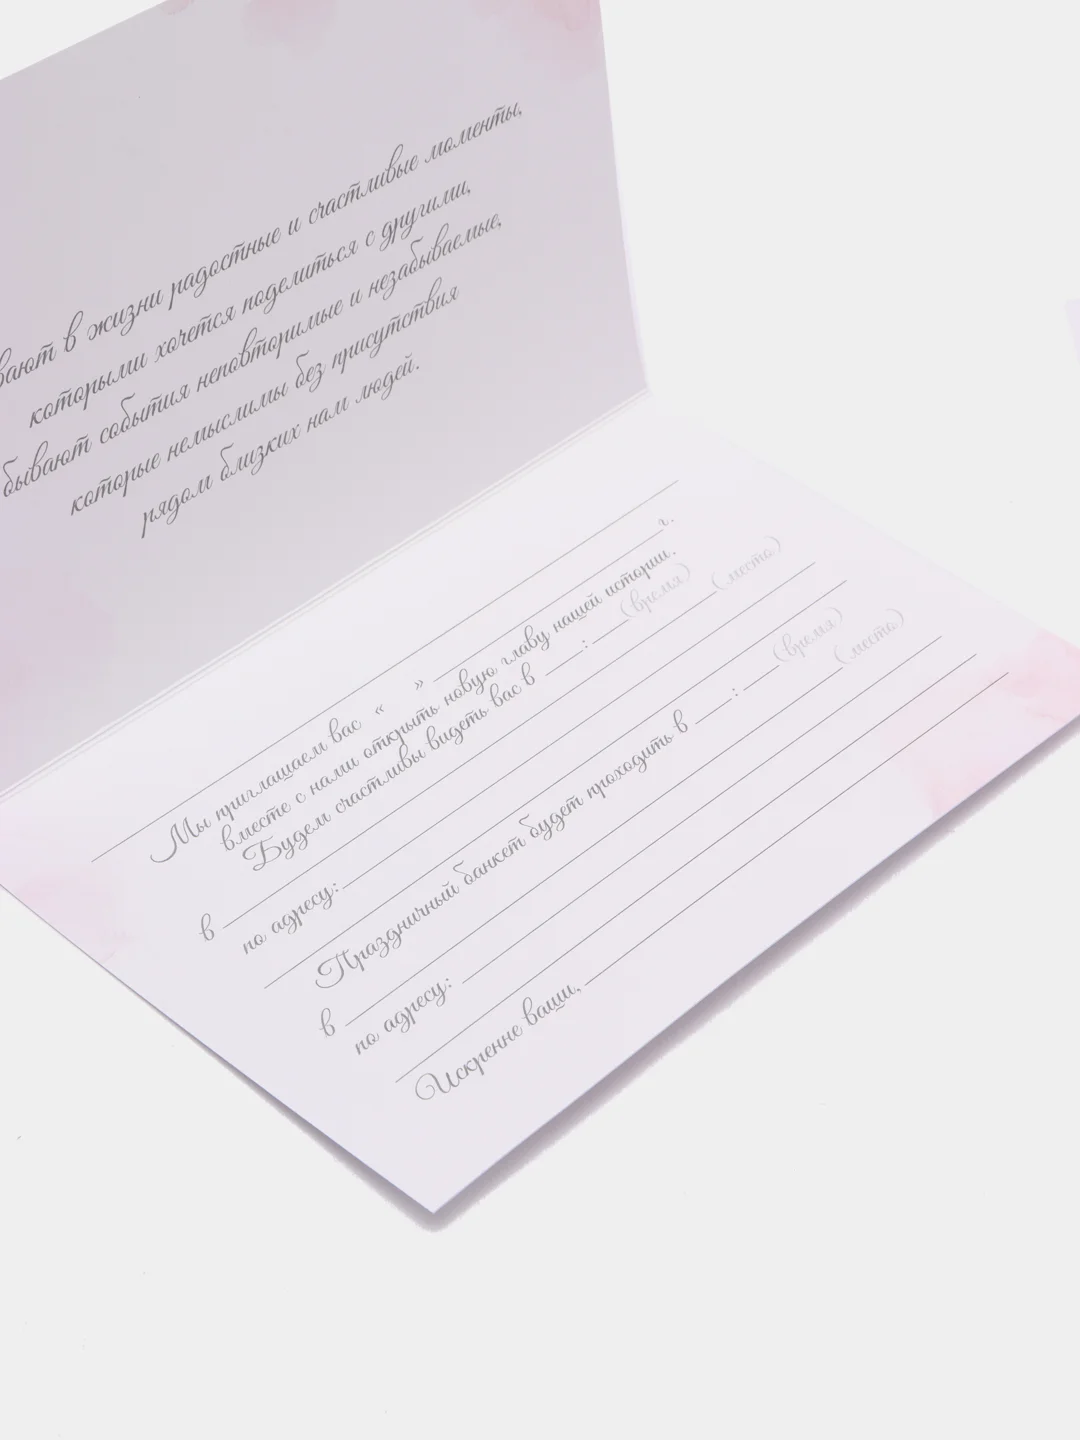 в жизни радостные и счастливые моменты,
которыми хочется поделиться с другими,
бывают события неповторимые и незабываемые,
которые немыслимы без присутствия
рядом близких нам людей.
Мы приглашаем вас « » г.
вместе с нами открыть новую главу нашей истории.
Будем счастливы видеть вас в : (время)
в (место)
по адресу:
Праздничный банкет будет проходить в : (время)
в (место)
по адресу:
Искренне ваши,